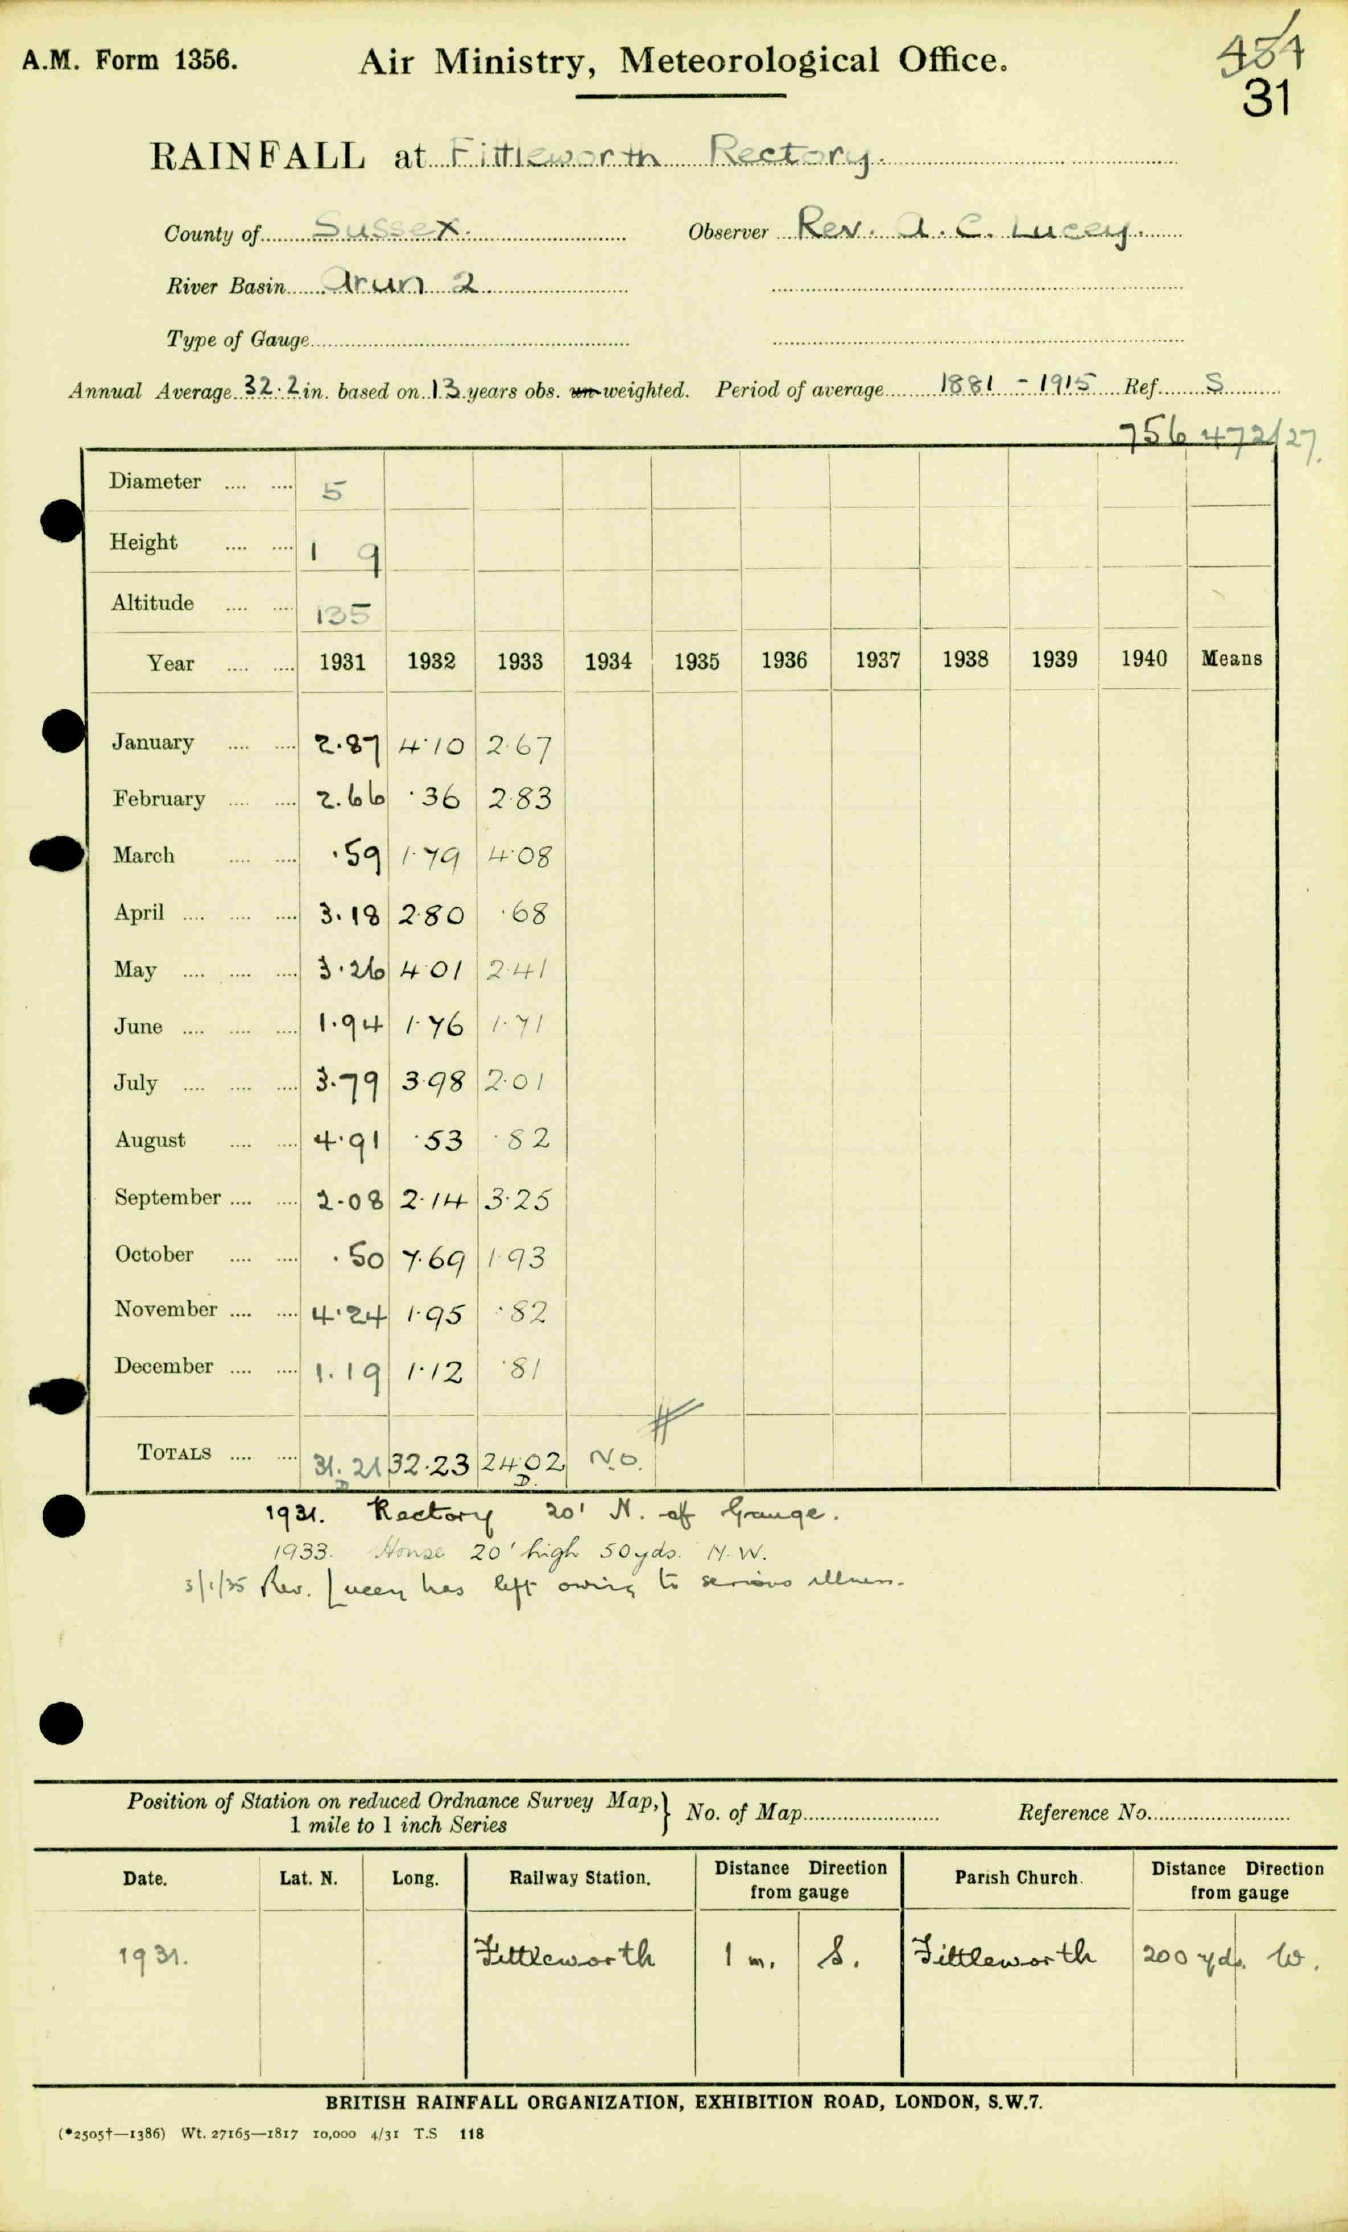 A.M. Form 1356. Air Ministry, Meteorological Office. 484
31
RAINFALL at Fittleworth Rectory.
County of Sussex. Observer Rev. A. C. Lucey.
River Basin Arun 2
Type of Gauge
Annual Average 32.2 in. based on 13 years obs. un-weighted. Period of average 1881 - 1915 Ref. S
756 472/27.
Diameter .... .... 5
Height .... .... 1 9
Altitude .... .... 135
Year .... .... 1931 1932 1933 1934 1935 1936 1937 1938 1939 1940 Means
January .... .... 2.87 4.10 2.67
February .... .... 2.66 .36 2.83
March .... .... .59 1.79 4.08
April .... .... .... 3.18 2.80 .68
May .... .... .... 3.26 4.01 2.41
June .... .... .... 1.94 1.76 1.71
July .... .... .... 3.79 3.98 2.01
August .... .... 4.91 .53 .82
September .... .... 2.08 2.14 3.25
October .... .... .50 7.69 1.93
November .... .... 4.24 1.95 .82
December .... .... 1.19 1.12 .81
TOTALS .... .... 31.21 32.23 24.02 N.O.
D D.
1931. Rectory 20' N. of Gauge.
1933. House 20' high 50yds. N.W.
3/1/35 Rev. Lucey has left owing to serious illness.
Position of Station on reduced Ordnance Survey Map, } No. of Map Reference No.
1 mile to 1 inch Series
Date. Lat. N. Long. Railway Station. Distance Direction from gauge Parish Church. Distance Direction from gauge
1931. Fittleworth 1 m. S. Fittleworth 200 yds. W.
BRITISH RAINFALL ORGANIZATION, EXHIBITION ROAD, LONDON, S.W.7.
(*2505†—1386) Wt. 27165—1817 10,000 4/31 T.S 118